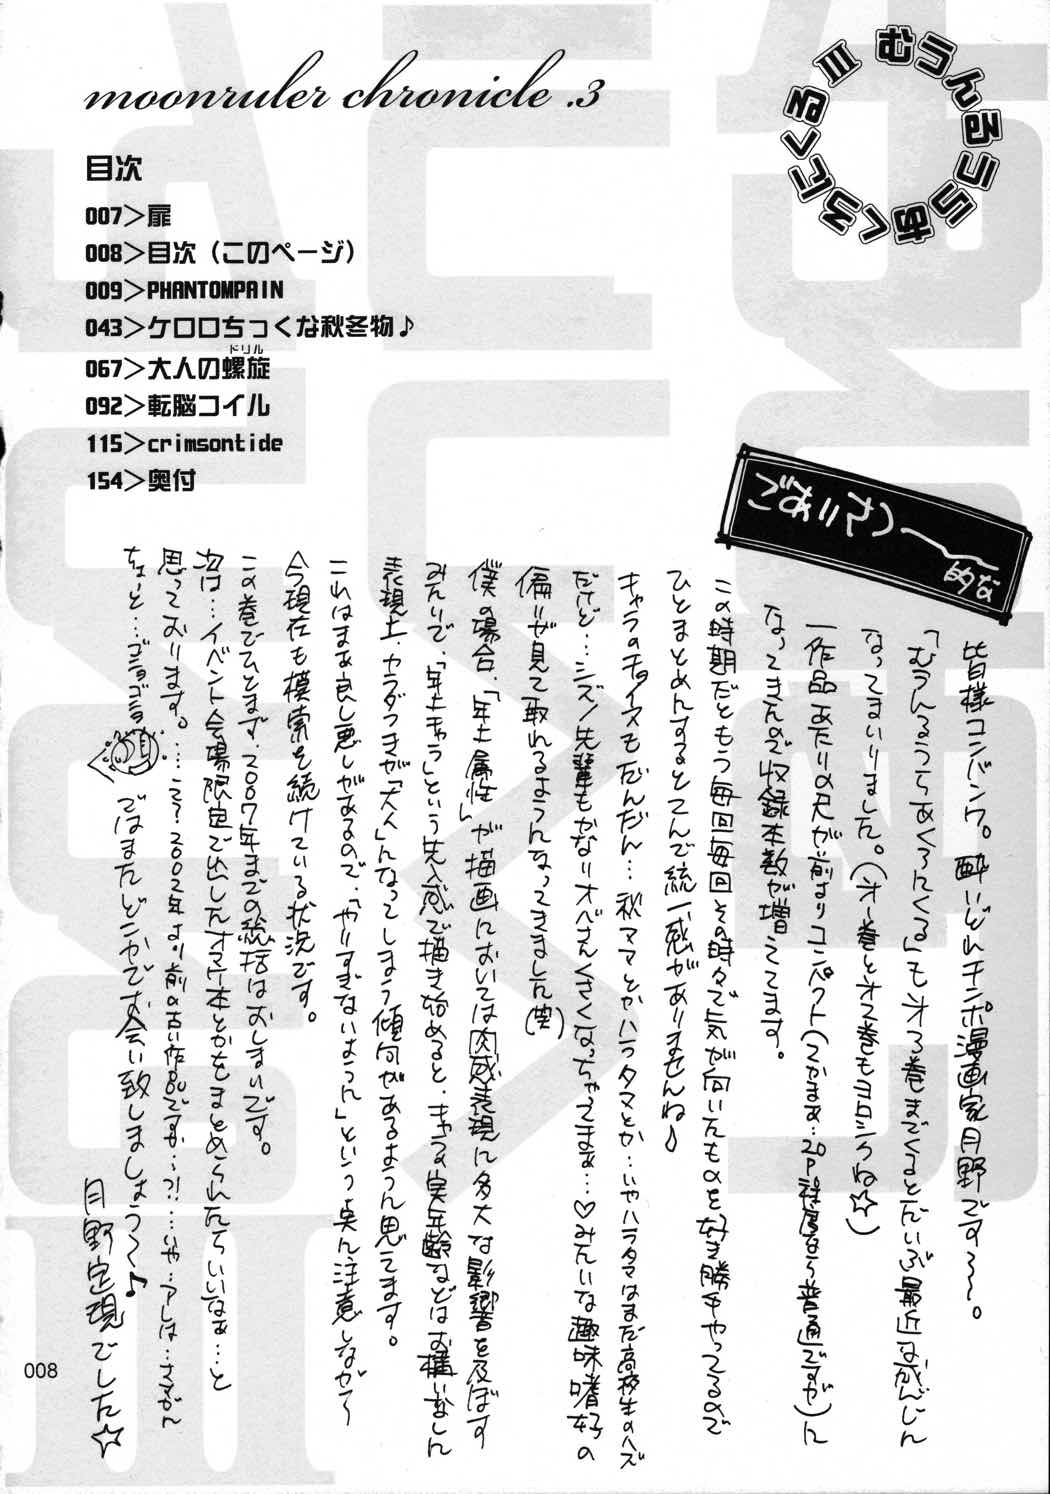 moonruler chronicle .3
むうんるうらあくろにくるIII
目次
007＞扉
008＞目次（このページ）
009＞PHANTOMPAIN
043＞ケロロちっくな秋冬物♪
067＞大人の螺旋
ドリル
092＞転脳コイル
115＞crimsontide
154＞奥付
ごあいさつ〜
的な
皆様コンバンワ。酔いどれチンポ漫画家月野です〜〜。
「むうんるうらあくろにくる」もオ3巻までくるとだいぶ最近なかんじに
なってまいりました。（オ1巻とオ2巻もヨロシクね☆）
一作品あたりの尺が前よりコンパクト（つかまぁ…20P程度なら普通ですが）に
なってきたので収録本数が増えてます。
この時期だともう毎回毎回その時々で気が向いたものを好き勝手やってるので
ひとまとめにするとてんで統一感がありませんね♪
キャラのチョイスもだんだん…秋ママとかハラタマとか…いやハラタマはまだ高校生のハズ
だけど…シズノ先輩もかなりオバさんくさくなっちゃってまぁ…♡みたいな趣味嗜好の
偏りが見て取れるようになってきました（笑）
僕の場合、「年上属性」が描画においては肉感表現に多大な影響を及ぼす
みたいで、「年上キャラ」という先入感で描き始めると、キャラの実年齢などはお構いなしに
表現上、カラダつきが「大人」になってしまう傾向があるように思えてます。
これはまあ良し悪しがあるので、「やりすぎないように」という点に注意しながら〜
今現在も模索を続けている状況です。
この巻でひとまず、2007年までの総括はおしまいです。
次は…イベント会場限定で出したオマケ本とかをまとめられたらいいなぁ…と
思っております。……え？2002年より前の古い作品ですか〜?!…いや…アレは…さすがに
ちょーと…ゴニョゴニョ
ではまたどこかでお会い致しましょう〜♪
月野定規でした☆
008